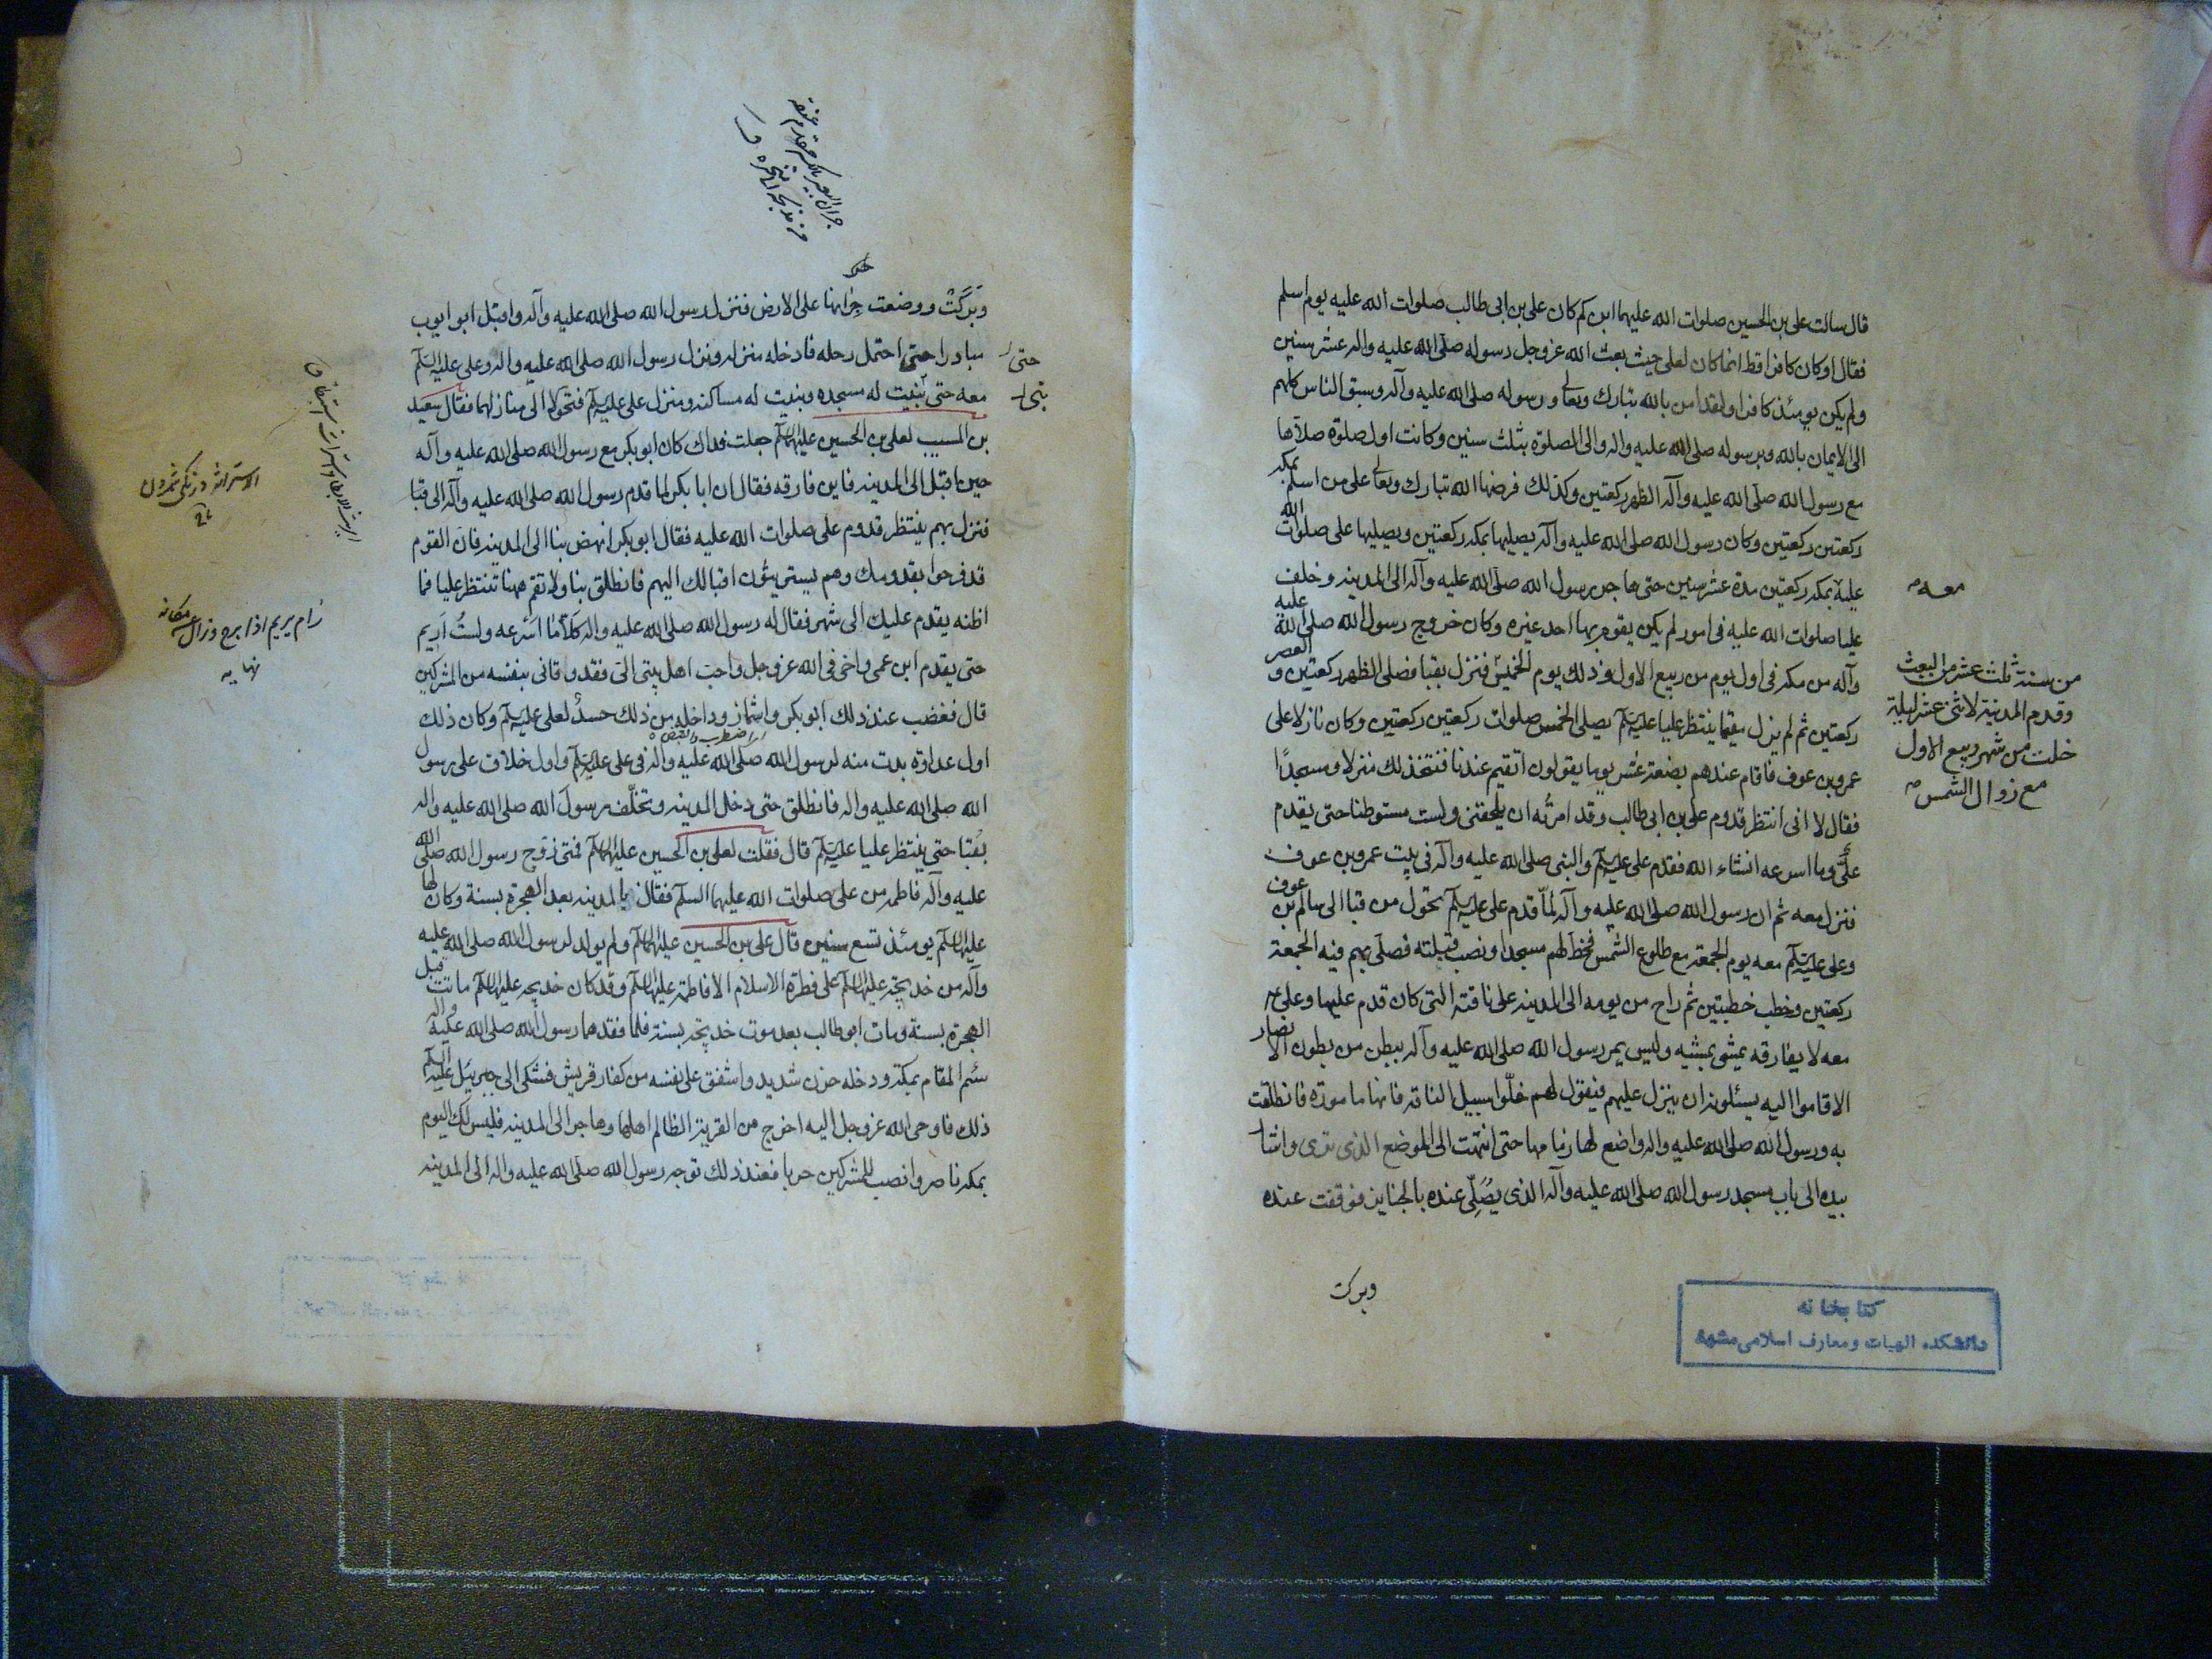 قال سالت علی بن الحسین صلوات الله علیهما ابن کم کان علی بن ابی طالب صلوات الله علیه یوم اسلم
فقال او کان کافرا قط انما کان لعلی حیث بعث الله عز و جل رسوله صلی الله علیه واله عشر سنین
ولم یکن یومئذ کافرا ولقد امن بالله تبارک وتعالی ورسوله صلی الله علیه وآله وسبق الناس کلهم
الی الایمان بالله وبرسوله صلی الله علیه واله والی الصلوة بثلث سنین وکانت اول صلوة صلاها
مع رسول الله صلی الله علیه وآله الظهر رکعتین وکذلک فرضها الله تبارک وتعالی علی من اسلم بمکه
رکعتین رکعتین وکان رسول الله صلی الله علیه وآله یصلیها بمکه رکعتین ویصلیها علی صلوات الله
علیه بمکه رکعتین مدة عشر سنین حتی هاجر رسول الله صلی الله علیه وآله الی المدینه وخلف
علیا صلوات الله علیه فی امور لم یکن یقوم بها احد غیره وکان خروج رسول الله صلی الله علیه
وآله من مکه فی اول یوم من ربیع الاول وذلک یوم الخمیس فنزل بقبا فصلی الظهر رکعتین و العصر
رکعتین ثم لم یزل مقیما ینتظر علیا علیه السلام یصلی الخمس صلوات رکعتین رکعتین وکان نازلا علی
عمرو بن عوف فاقام عندهم بضعة عشر یوما یقولون اتقیم عندنا فنتخذ لک منزلا ومسجدا
فقال لا انی انتظر قدوم علی بن ابی طالب وقد امرته ان یلحقنی ولست مستوطنا حتی یقدم
علی وما اسرعه انشاء الله فقدم علی علیه السلام والنبی صلی الله علیه وآله فی بیت عمرو بن عوف
فنزل معه ثم ان رسول الله صلی الله علیه وآله لما قدم علی علیه السلام تحول من قبا الی سالم بن عوف
وعلی علیه السلام معه یوم الجمعة مع طلوع الشمس فخط لهم مسجدا ونصب قبلته فصلی بهم فیه الجمعة
رکعتین وخطب خطبتین ثم راح من یومه الی المدینه علی ناقته التی کان قدم علیها وعلی ع
معه لا یفارقه یمشی بمشیه ولیس یمر رسول الله صلی الله علیه وآله ببطن من بطون الانصار
الا قاموا الیه یسئلونه ان ینزل علیهم فیقول لهم خلوا سبیل الناقه فانها مامورة فانطلقت
به ورسول الله صلی الله علیه واله واضع لها زمامها حتی انتهت الی الموضع الذی تری واشار
بیده الی باب مسجد رسول الله صلی الله علیه وآله الذی یصلی عنده بالجنایز فوقفت عنده
وبرکت
معه
من سنة ثلث عشر من البعث
وقدم المدینة لاثنی عشر لیلة
خلت من شهر ربیع الاول
مع زوال الشمس
کتابخانه
دانشکده الهیات ومعارف اسلامی مشهد
وبرکت ووضعت جرانها علی الارض فنزل رسول الله صلی الله علیه وآله واقبل ابو ایوب
مبادرا حتی احتمل رحله فادخله منزله ونزل رسول الله صلی الله علیه واله وعلی علیه السلام
معه حتی بنیت له مسجده وبنیت له مساکنه ومنزل علی علیه السلام فتحولا الی منازلهما فقال سعید
بن المسیب لعلی بن الحسین علیهما السلام جعلت فداک کان ابو بکر مع رسول الله صلی الله علیه وآله
حین اقبل الی المدینه فاین فارقه فقال ان ابا بکر لما قدم رسول الله صلی الله علیه وآله الی قبا
فنزل بهم ینتظر قدوم علی صلوات الله علیه فقال ابو بکر انهض بنا الی المدینه فان القوم
قد فرحوا بقدومک وهم یستریثون اقبالک الیهم فانطلق بنا ولا تقم ههنا تنتظر علیا فما
اظنه یقدم علیک الی شهر فقال له رسول الله صلی الله علیه واله کلا ما اسرعه ولست اریم
حتی یقدم ابن عمی واخی فی الله عز وجل واحب اهل بیتی الی فقد وقانی بنفسه من المشرکین
قال فغضب عند ذلک ابو بکر واشماز وداخله من ذلک حسد لعلی علیه السلام وکان ذلک
اول عداوة بدت منه لرسول الله صلی الله علیه واله فی علی علیه السلام واول خلاف علی رسول
الله صلی الله علیه واله فانطلق حتی دخل المدینه وتخلف رسول الله صلی الله علیه واله
بقبا حتی ینتظر علیا علیه السلام قال فقلت لعلی بن الحسین علیهما السلام فمتی زوج رسول الله صلی الله
علیه وآله فاطمه من علی صلوات الله علیهما السلم فقال بالمدینه بعد الهجرة بسنة وکان لها
علیها السلام یومئذ تسع سنین قال علی بن الحسین علیهما السلام ولم یولد لرسول الله صلی الله علیه
وآله من خدیجة علیها السلام علی فطرة الاسلام الا فاطمة علیها السلام وقد کان خدیجه علیها السلام ماتت قبل
الهجرة بسنة ومات ابو طالب بعد موت خدیجه بسنة فلما فقدهما رسول الله صلی الله علیه واله
سئم المقام بمکة ودخله حزن شدید واشفق علی نفسه من کفار قریش فشکی الی جبرئیل علیه السلام
ذلک فاوحی الله عز وجل الیه اخرج من القریة الظالم اهلها وهاجر الی المدینه فلیس لک الیوم
بمکه ناصر وانصب للمشرکین حربا فعند ذلک توجه رسول الله صلی الله علیه واله الی المدینه
حتی
بنی
رام یریم اذا برح وزال من مکانه
نهایه